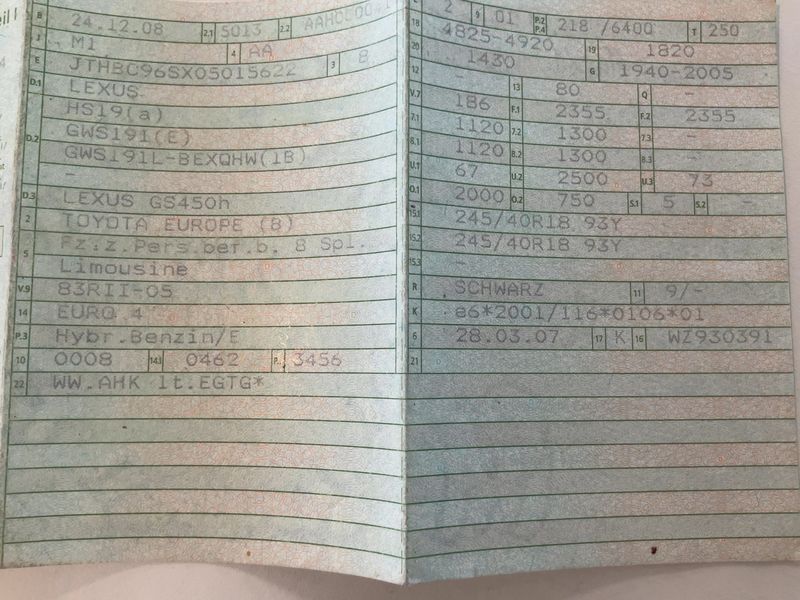 B 24.12.08 2.1 5013 2.2
J M1 4 AA
E JTHBC96SX05015622 3 8
D.1 LEXUS
HS19(a)
D.2 GWS191(E)
GWS191L-BEXQHW(1B)
-
D.3 LEXUS GS450h
2 TOYOTA EUROPE (B)
5 Fz.z.Pers.bef.b. 8 Spl.
Limousine
V.9 83RII-05
14 EURO 4
P.3 Hybr.Benzin/E
10 0008 14.1 0462 P.1 3456
22 WW.AHK lt.EGTG*
L 2 9 01 P.2 P.4 218 /6400 T 250
18 4825-4920 19 1820
20 1430 G 1940-2005
12 - 13 80 Q -
V.7 186 F.1 2355 F.2 2355
7.1 1120 7.2 1300 7.3 -
8.1 1120 8.2 1300 8.3 -
U.1 67 U.2 2500 U.3 73
O.1 2000 O.2 750 S.1 5 S.2 -
15.1 245/40R18 93Y
15.2 245/40R18 93Y
15.3 -
R SCHWARZ 11 9/-
K e6*2001/116*0106*01
6 28.03.07 17 K 16 WZ930391
21